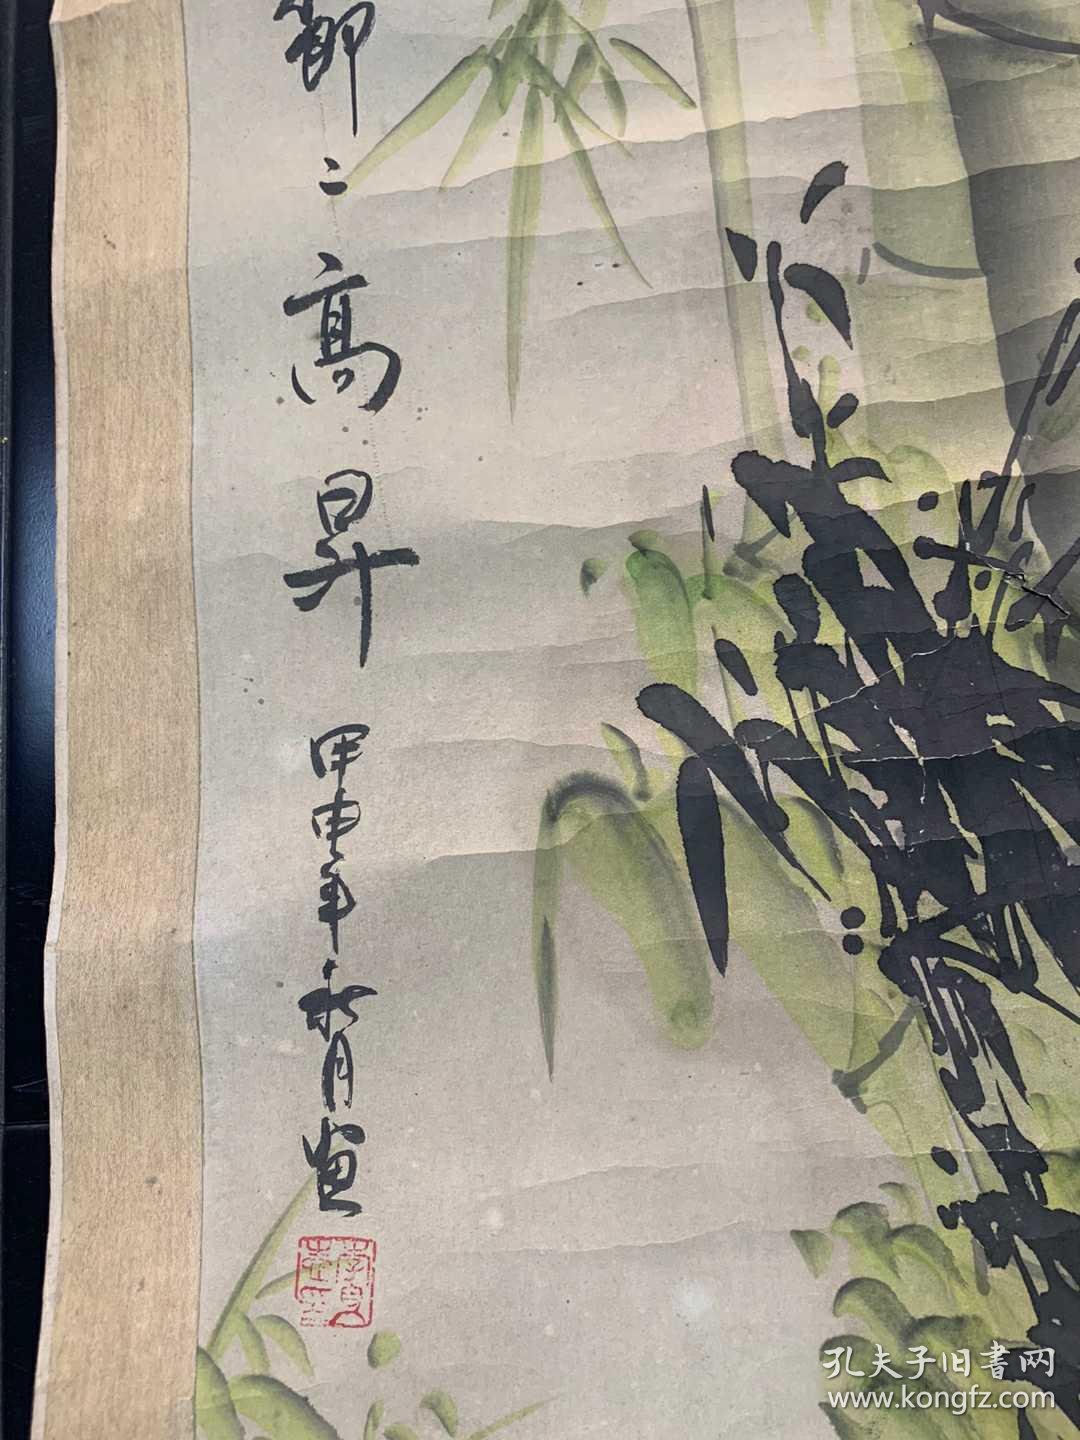 節〻高昇
甲申年秋月畫
孔夫子旧書网
www.kongfz.com